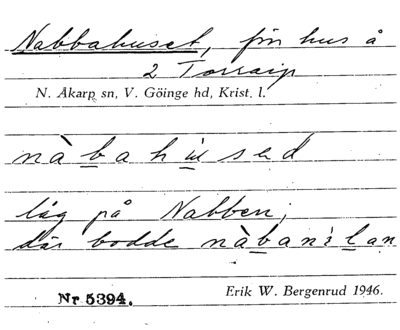 Nabbahuset, frn hus å
2 Torraip
N. Åkarp sn, V. Göinge hd, Krist. l.
nàbahused
låg på Nabben,
där bodde nàbanilan
Nr 5394.
Erik W. Bergenrud 1946.